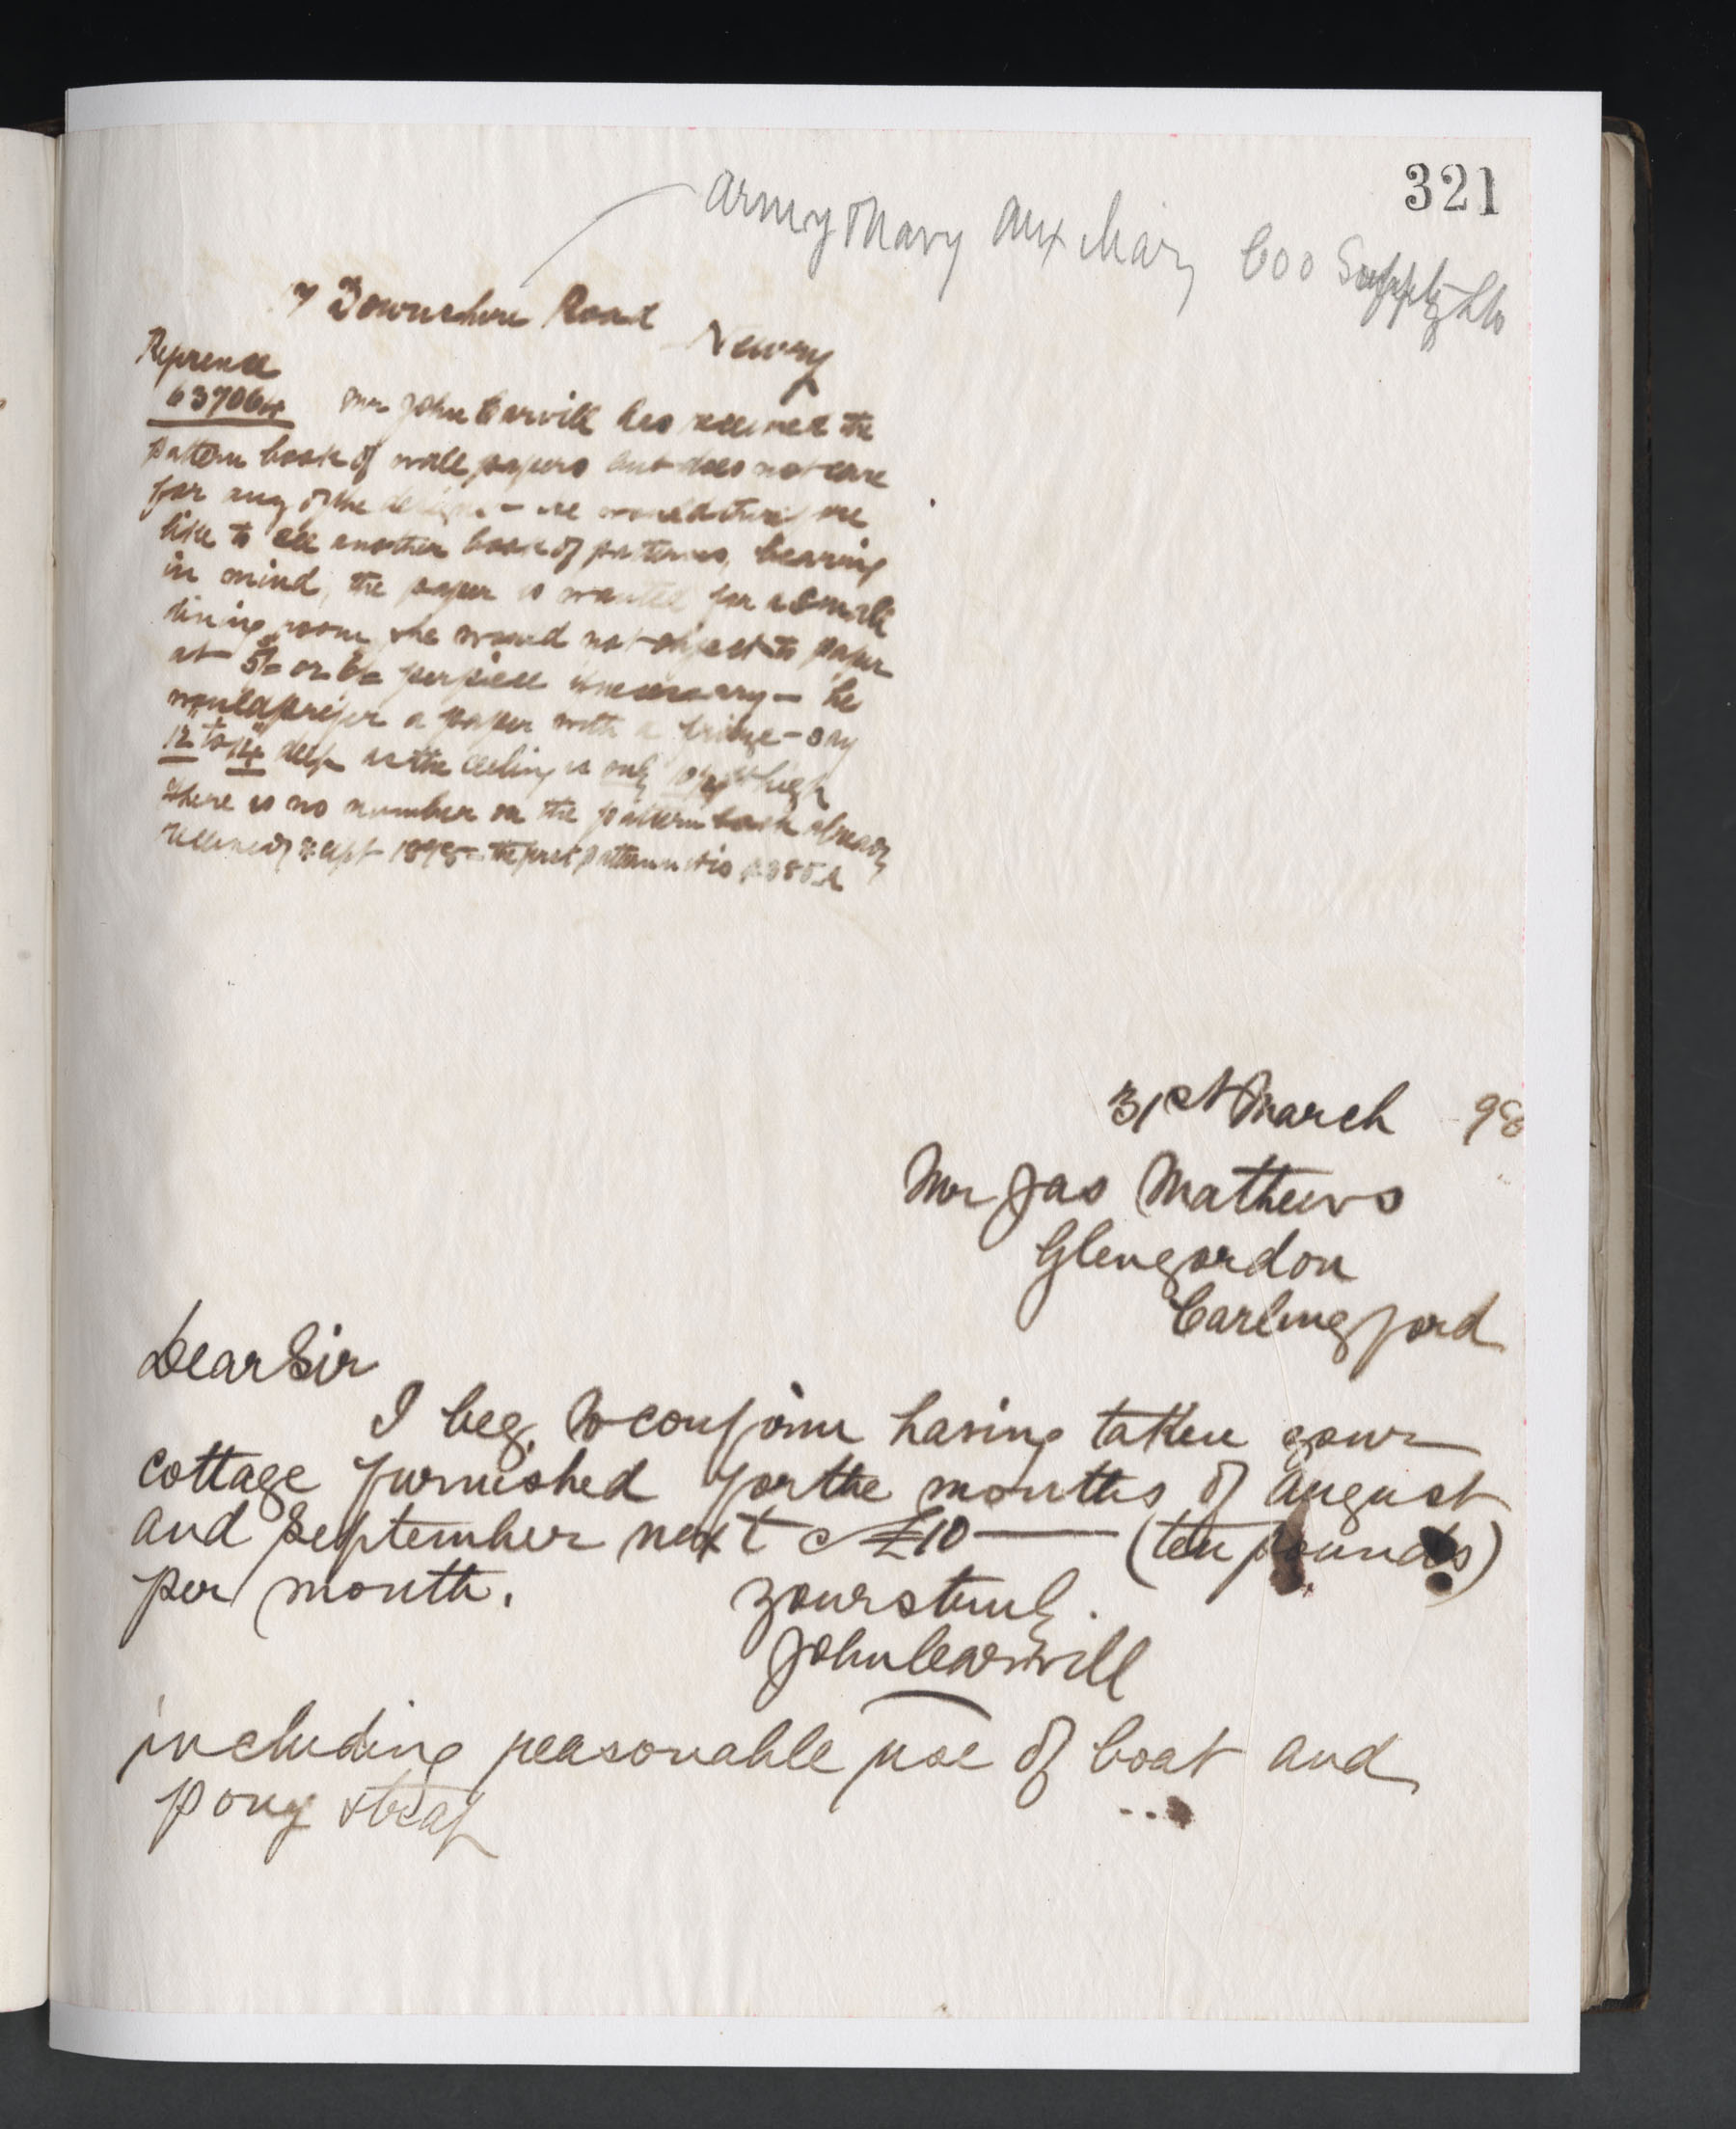 321
Army & Navy Auxiliary Coo Supply Ltd
7 Downshire Road
Newry
Reference
637064 Mr John Carvill has received the
pattern book of wall papers but does not care
for any of the designs - he would therefore
like to see another book of patterns, bearing
in mind, the paper is wanted for a small
dining room, he would not object to paper
at 5/= or 6/= per piece if necessary - he
would prefer a paper with a fringe - say
12" to 14" deep as the ceiling is only high
There is no number on the pattern book already
received, Sept 1898 - the first pattern is
31st March 98
Mr Jas Mathews
Glengardon
Carlingford
Dear Sir
I beg to confirm having taken your
cottage furnished for the months of August
and September next @ £10 — (ten pounds)
per month.
Yours truly.
John Carvill
including reasonable use of boat and
pony & trap